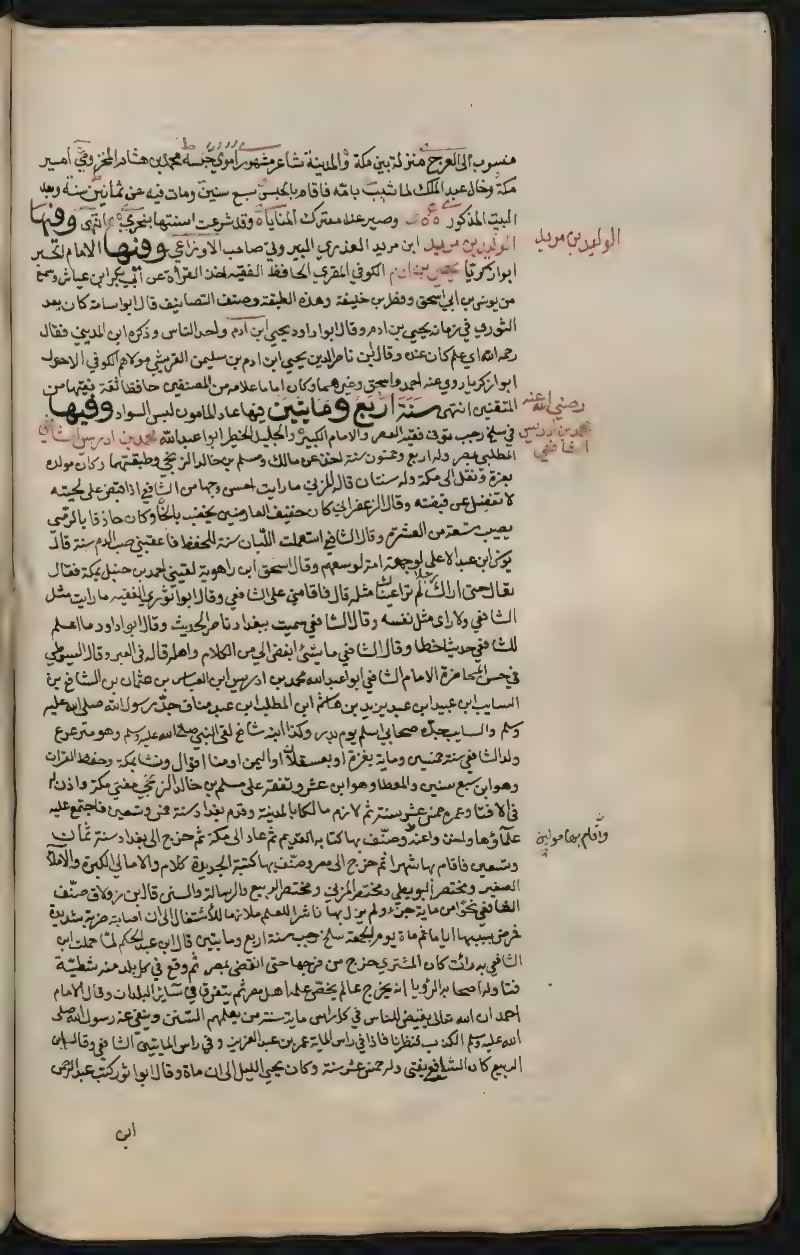 منسوب الى العرج منزلة بين مكة والمدينة شاعر مشهور اموي حبسه محمد بن هشام المخزومي امير
مكة وخال عبد الملك لما شبب بامه فاقام بالحبس سبع سنين ومات فيه عن ثمانين سنة وبعد
البيت المذكور وصبر عند معترك المنايا وقد شرعت اسنتها بنحري انتهى وفيها
الوليد بن مريد
الوليد بن مريد ابن مريد العذري البيروتي صاحب الاوزاعي وفيها الامام الحبر
ابو زكريا يحيى بن ادم الكوفي المقري الحافظ الفقيه اخذ القراة عن ابي بكر ابن عياش وسمع
من يونس بن ابي اسحق وفطر بن خليفة وهذه الطبقة وصنف التصانيف قال ابو اسامة كان بعد
الثوري في زمانه يحيى بن ادم وقال ابو داود يحيى ابن ادم واحد الناس وذكره ابن المديني فقال
رحمه الله اي علم كان عنده وقال ابن ناصر الدين يحيى ابن ادم بن سليمن القرشي مولاهم الكوفي الاحول
ابو زكريا روى عنه احمد واسحق وغيرهما وكان اماما علامة من المصنفين حافظا ثقة فقيها من
المتقنين انتهى سنة اربع ومايتين فيها عاد المامون لبس السواد وفيها
رضي الله عنه
محمد بن ادريس
الشافعي
في سلخ رجب توفي فقيه العصر والامام الكبير والجليل الخطير ابو عبد الله محمد بن ادريس الشافعي
المطلبي بمصر وله اربع وخمسون سنة اخذ عن مالك ومسلم بن خالد الزنجي وطبقتهما وكان مولده
بغزة ونقل الى مكة وله سنتان قال المزني ما رايت احسن وجها من الشافعي اذا قبض على لحيته
لا تفضل عن قبضته وقال الزعفراني كان خفيف العارضين يخضب بالحنا وكان حاذقا بالرمي
يصيب تسعة من العشرة وقال الشافعي استعملت اللبان سنة للحفظ فاعقبني صب الدم سنة قال
يونس ابن عبد الاعلى لو جمعت امة لوسعهم وقال اسحق ابن راهوية لقيني احمد بن حنبل بمكة فقال
تعال حتى اراك رجلا لم تر عيناك مثله قال فاقامني على الشافعي وقال ابو ثور الفقيه ما رايت مثل
الشافعي ولا راى مثل نفسه وقال الشافعي سميت ببغداد ناصر الحديث وقال ابو داود ما اعلم
للشافعي حديثا خطا وقال الشافعي ما شيئ ابغض الي من الكلام واهله قاله في العبر وقال السيوطي
في حسن المحاضرة الامام الشافعي ابو عبد الله محمد بن ادريس ابن العباس بن عثمان بن الشافع بن
السايب ابن عبيد ابن عبد يزيد بن هاشم ابن المطلب ابن عبد مناف جد رسول الله صلى الله عليه
وسلم والسايب جده صحابي اسلم يوم بدر وكذا ابنه شافع لقي النبي صلى الله عليه وسلم وهو مترعرع
ولد الشافعي سنة خمسين وماية بغزة او بعسقلان او اليمن او منا اقوال ونشا بمكة وحفظ القران
وهو ابن سبع سنين والموطا وهو ابن عشر وتفقه على مسلم بن خالد الزنجي مفتي مكة واذن له
في الافتا وعمره خمس عشر سنة ثم لازم مالكا بالمدينة وقدم بغداد سنة خمس وتسعين فاجتمع عليه
واقام بها حولين
علماؤها واخذوا عنه وصنف بها كتابه القديم ثم عاد الى مكة ثم خرج الى بغداد سنة ثمان
وتسعين فاقام بها شهرا ثم خرج الى مصر وصنف بها كتبه الجديدة كلام والامالي الكبرى والاملا
الصغير ومختصر البويطي ومختصر المزني ومختصر الربيع والرسالة والسنن قال ابن زولاق صنف
الشافعي نحوا من ماية جزء ولم يزل بها ناشرا للعلم ملازما للاشتغال الى ان اصابه ضربة شديدة
فمرض بسببها اياما ثم مات يوم الجمعة سلخ رجب سنة اربع ومايتين قال ابن عبد الحكم لما حملت ام
الشافعي به رات كان المشتري خرج من فرجها حتى انقض بمصر ثم وقع في كل بلد منه شظية
فتاوله اصحاب الرؤيا انه يخرج عالم يخص علمه اهل مصر ثم يتفرق في سائر البلدان وقال الامام
احمد ان الله تعالى يقيض للناس في كل راس ماية سنة من يعلمهم السنن وينفي عن رسول الله صلى
الله عليه وسلم الكذب فنظرنا فاذا في راس الماية عمر بن عبد العزيز وفي راس المايتين الشافعي وقال ابن
الربيع كان الشافعي يفتي وله خمس عشر سنة وكان يحيي الليل الى ان مات وقال ابو ثور كتب عبد الرحمن
ابن